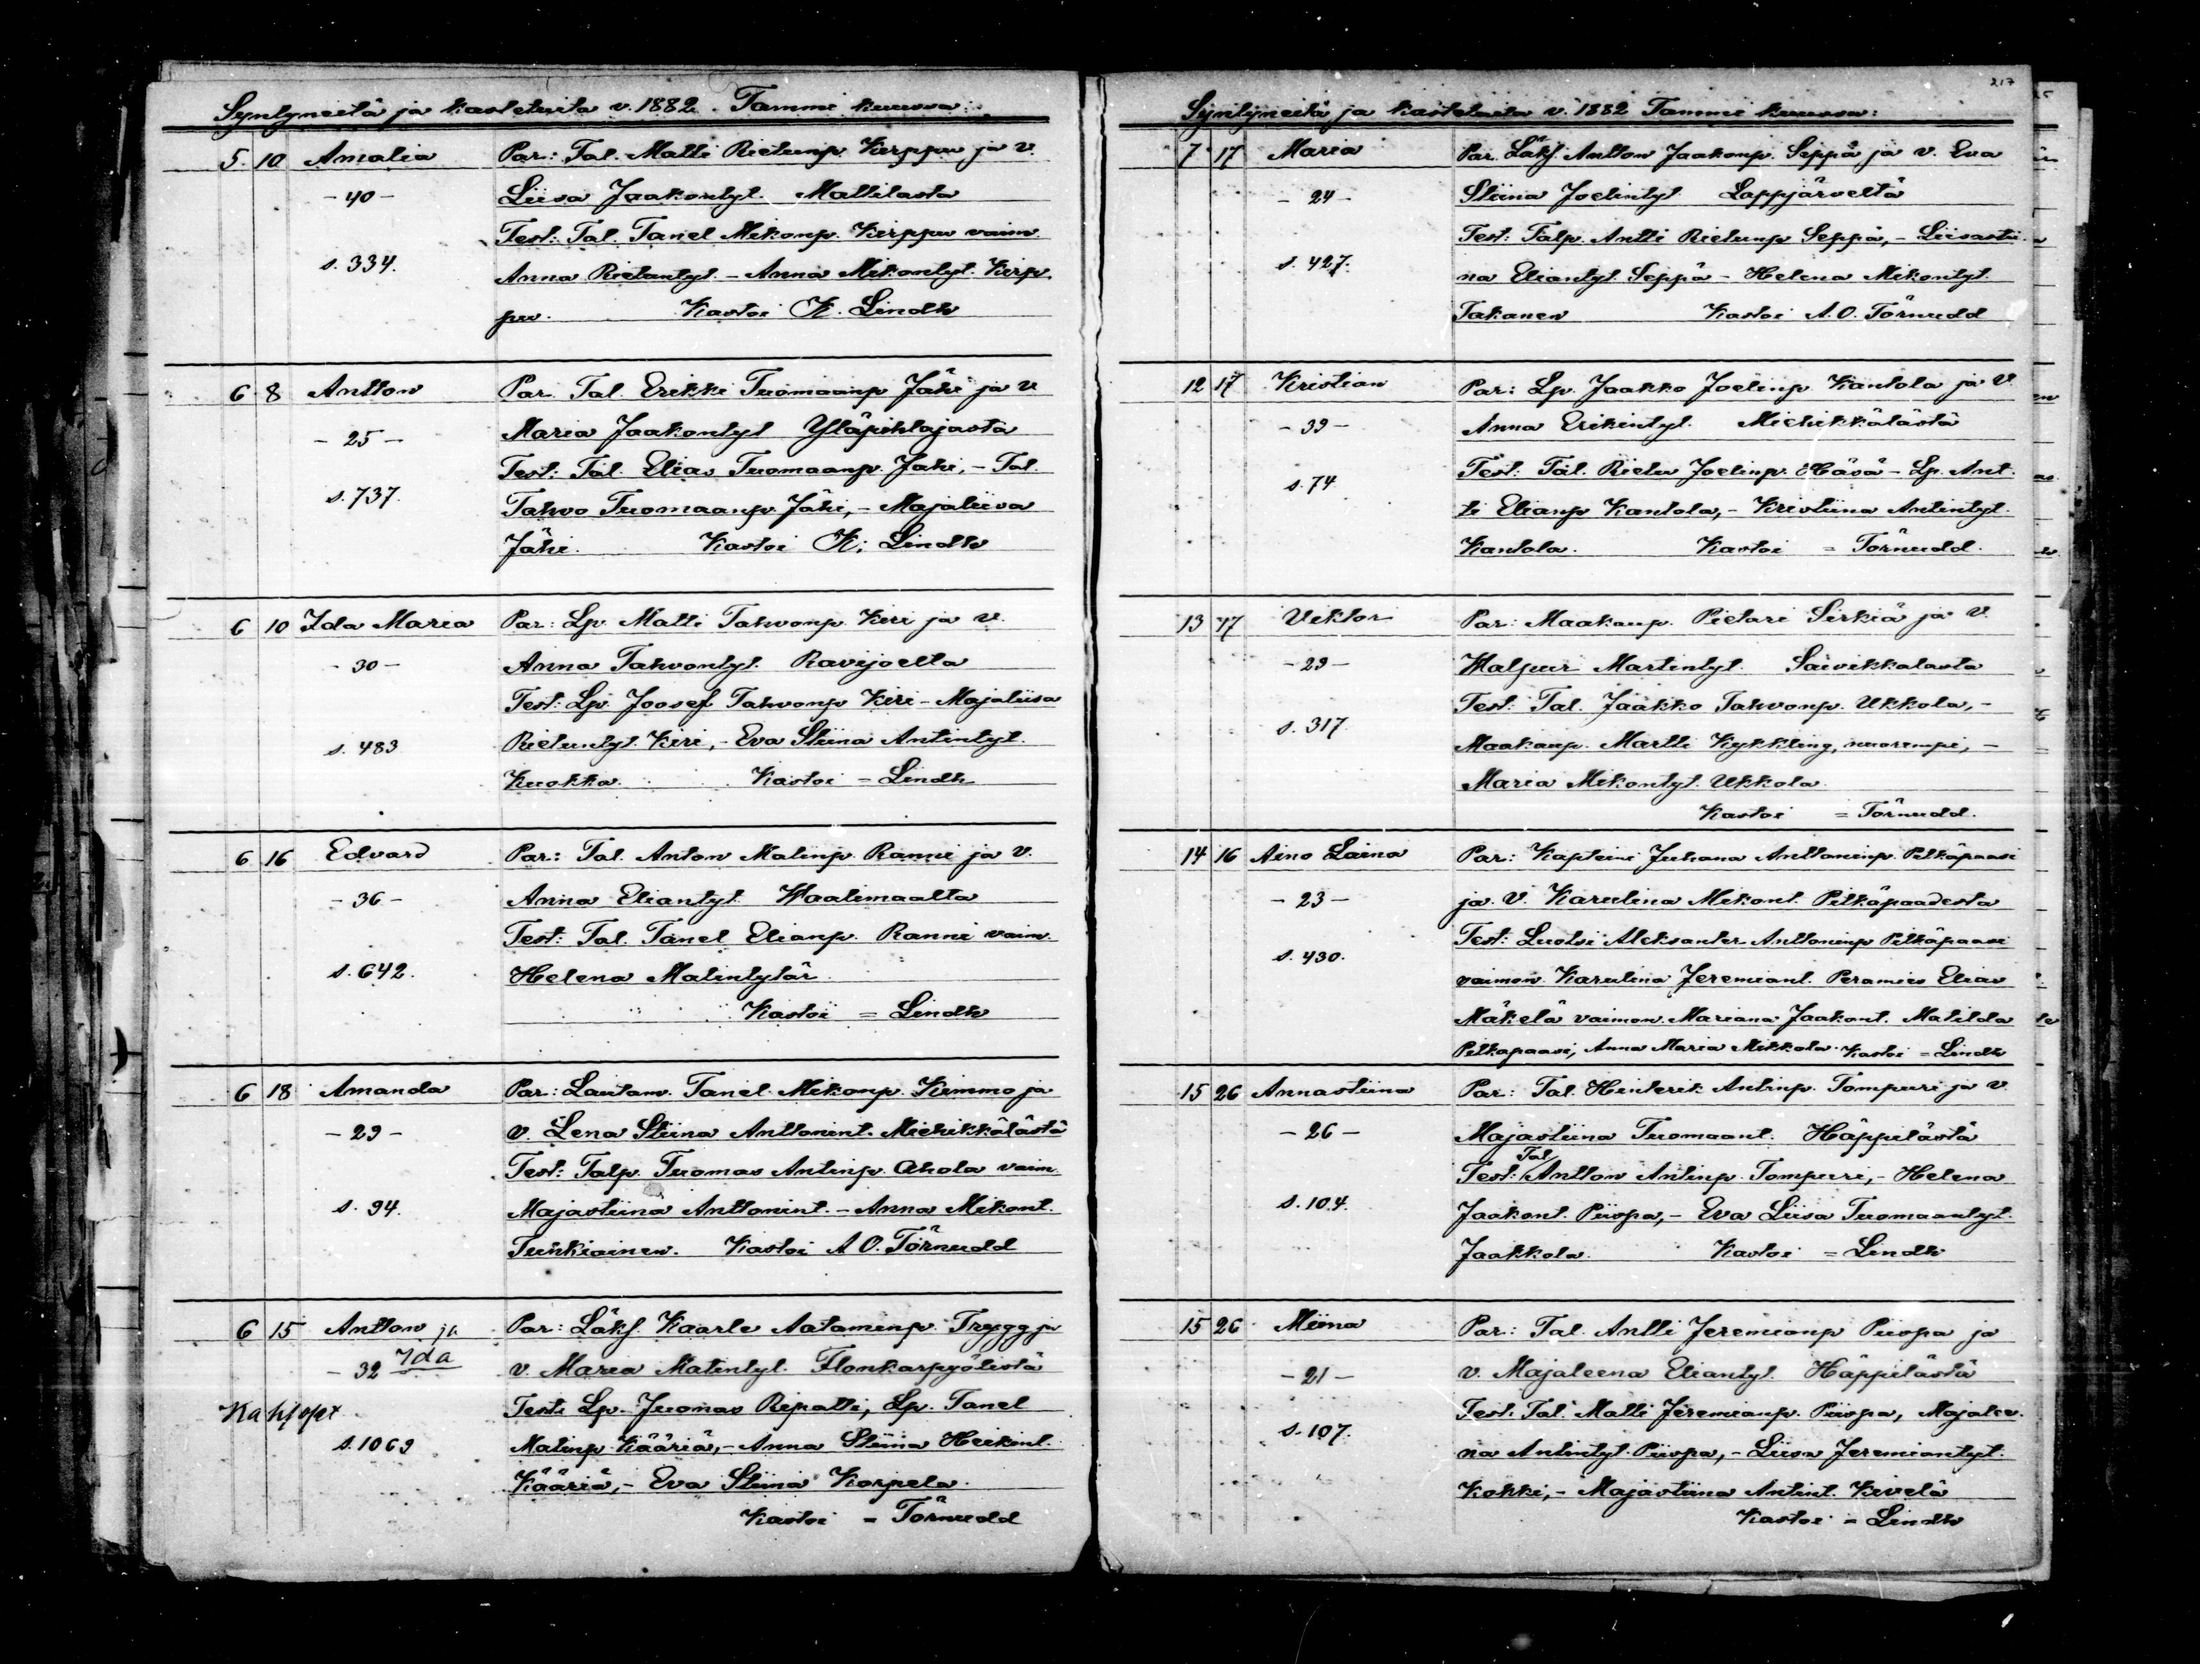 Syntyneitä ja kastetuita v. 1882. Tammi kuussa:
5. 10 Amalia Par: Tal. Matti Rietunp. Kirppu ja v.
- 40 - Liisa Jaakontyt. Mattilasta
Test: Tal. Tanel Mikonp. Kirppu vaim.
s. 334. Anna Rietuntyt. - Anna Mikontyt. Kirp-
pu. Kastoi K. Lindh
6 8 Antton Par. Tal. Erikki Tuomaanp Jähi ja v
- 25 - Maria Jaakontyt Yläpihlajasta
Test: Tal. Elias Tuomaanp. Jähi, - Tal.
s. 737. Tahvo Tuomaanp Jähi, - Majaliisa
Jähi. Kastoi K. Lindh
6 10 Ida Maria Par: Lp. Matti Tahvonp Kiri ja v.
- 30 - Anna Tahvontyt. Ravijoelta
Test: Lp. Joosef Tahvonp Kiri - Majaliisa
s. 483 Rietuntyt. Kiri, - Eva Stiina Antintyt.
Kuokka. Kastoi = Lindh
6 16 Edvard Par: Tal. Anton Matinp. Ranni ja v.
- 36 - Anna Eliantyt. Waalimaalta
Test: Tal. Tanel Elianp. Ranni vaim.
s. 642. Helena Matintytär
Kastoi = Lindh
6 18 Amanda Par: Lautam. Tanel Mikonp. Kimmo ja
- 29 - v. Lena Stiina Anttonint. Miehikkälästä
Test: Talp. Tuomas Antinp. Ahola vaim.
s. 94. Majastiina Anttonint. - Anna Mikont.
Turkiainen. Kastoi A. O. Törnudd
6 15 Antton ja Par: Läks. Kaarle Aataminp. Trygg ja
- 32 Ida v. Maria Matintyt. Flonkarpyölistä
Kaksoset Test: Lp. Juonas Ripatti, Lp. Tanel
s. 1069 Matinp. Kääriä, - Anna Stiina Heikint.
Kääriä, - Eva Stiina Korpela.
Kastoi = Törnudd
217
Syntyneitä ja kastetuita v. 1882 Tammi kuussa:
7 17 Maria Par. Läks. Antton Jaakonp. Seppä ja v. Eva
- 24 - Stiina Joelintyt Lappjärveltä
Test: Talp. Antti Rietunp Seppä, - Liisastii-
s. 427. na Eliantyt. Seppä - Helena Mikontyt.
Takanen Kastoi A. O. Törnudd
12 17 Kristian Par: Lp. Jaakko Joelinp Kantola ja v
- 39 - Anna Erikintyt. Miehikkälästä
Test: Tal. Rietu Joelinp. Häsä - Lp. Ant-
s. 74 ti Elianp Kantola, - Kristiina Antintyt.
Kantola. Kastoi = Törnudd.
13 17 Viktor Par: Maakaup. Pietari Sirkiä ja v.
- 29 - Walpur Martintyt. Saivikkalasta
Test: Tal. Jaakko Tahvonp. Ukkola, -
s. 317. Maakaup. Martti Kykkling, nuorempi, -
Maria Mikontyt. Ukkola.
Kastoi = Törnudd.
14 16 Aino Laina Par: Kapteini Juhana Anttoninp. Pitkäpaasi
- 23 - ja v. Karulina Mikont. Pitkäpaadesta
Test: Luotsi Aleksanter Anttoninp Pitkäpaasi
s. 430. vaimon Karulina Jeremiant. Peramies Elias
Mäkelä vaimon. Mariana Jaakont. Matilda
Pitkapaasi, Anna Maria Mikkola. Kastoi = Lindh
15 26 Annastiina Par: Tal. Hinterik Antinp. Tompuri ja v.
- 26 - Majastiina Tuomaant. Häppilästä
Test: Tal Antton Antinp. Tompuri, - Helena
s. 104. Jaakont. Piispa, - Eva Liisa Tuomaantyt.
Jaakkola. Kastoi = Lindh
15 26 Miina Par: Tal. Antti Jeremianp Piispa ja
- 21 - v. Majaleena Eliantyt. Häppilästä
Test. Tal. Matti Jeremianp. Piispa, Majalee-
s. 107. na Antintyt. Piispa, - Liisa Jeremiantyt.
Kokki, - Majastiina Antint. Kivelä
Kastoi = Lindh